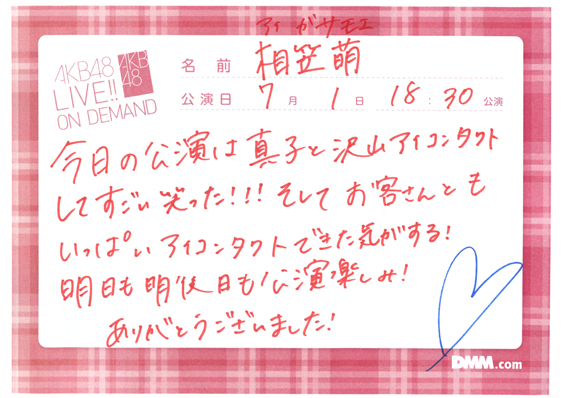 アイガサモエ
AKB48
LIVE!!
ON DEMAND
AKB
48
名前 相笠萌
公演日 7月1日 18:30公演
今日の公演は真子と沢山アイコンタクト
してすごい笑った!!!そしてお客さんとも
いっぱいアイコンタクトできた気がする!
明日も明後日も公演楽しみ!
ありがとうございました!
DMM.com